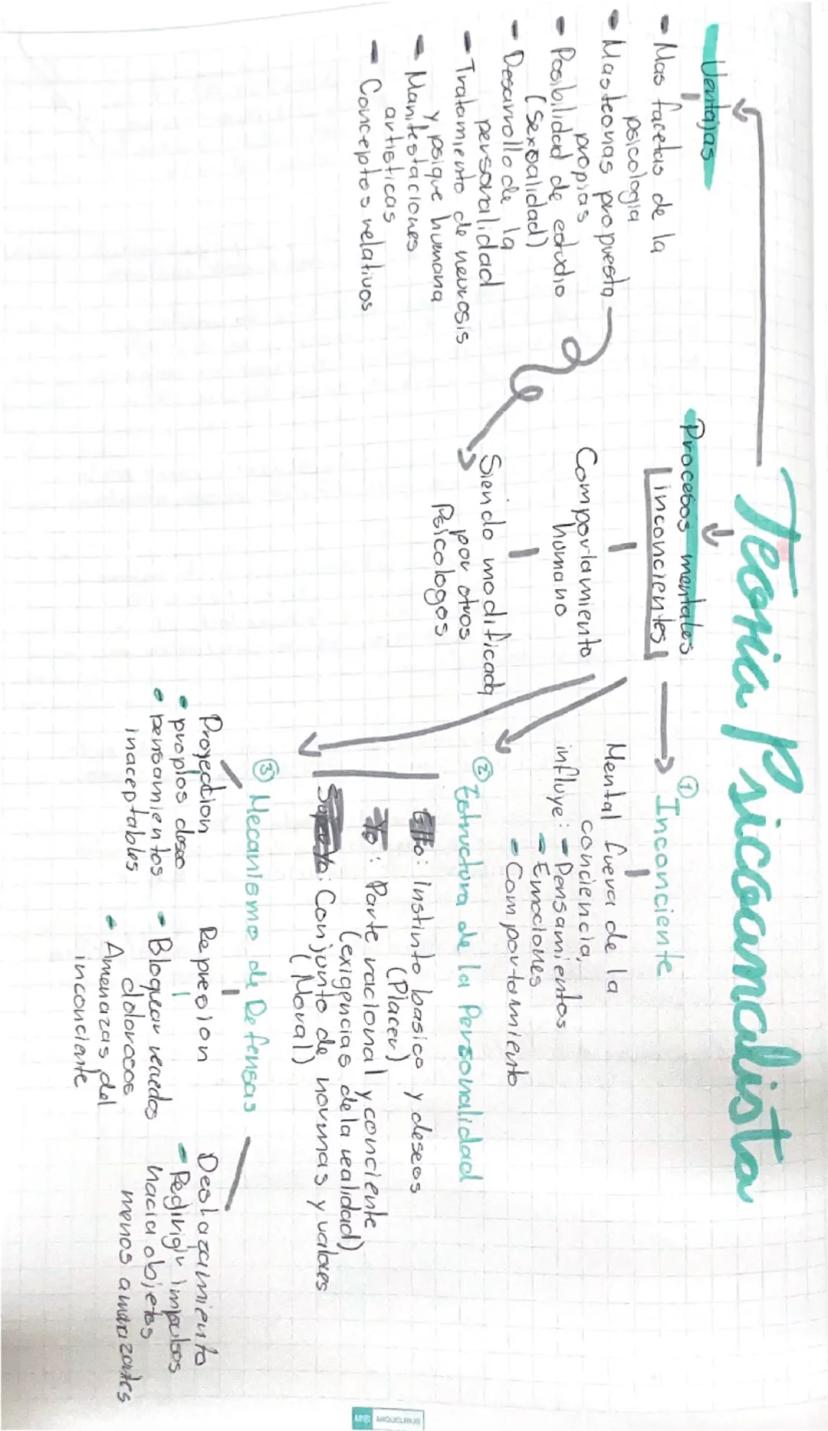 Teoria Psicoanalista
Ventajas
- Mas facetas de la
psicologia
- Mas teorias propuesta
propias
- Posibilidad de estudio
(Sexoalidad)
- Desarrollo de la
personalidad
- Tratamiento de neurosis
y psique humana
- Manifestaciones
artisticas
- Conceptos relativos
Procesos mentales
inconcientes
Comportamiento
humano
Siendo modificada
por otros
Psicologos
① Inconciente
Mental fuera de la
conciencia
influye: - Pensamientos
- Emociones
- Comportamiento
② Estructura de la Personalidad
Ello: instinto basico y deseos
(Placer)
Yo: Parte racional y conciente
(exigencias de la realidad)
Conjunto de normas y valores
(Moral)
③ Mecanismo de Defensas
Proyeccion
• propios deseo
• pensamientos
inaceptables
Represion
- Bloquear
dolorocos
• Amenazas del
inconciante
Deslazamiento
- Redirigir impulsos
hacia objetos
menos
MIQUELRIUS